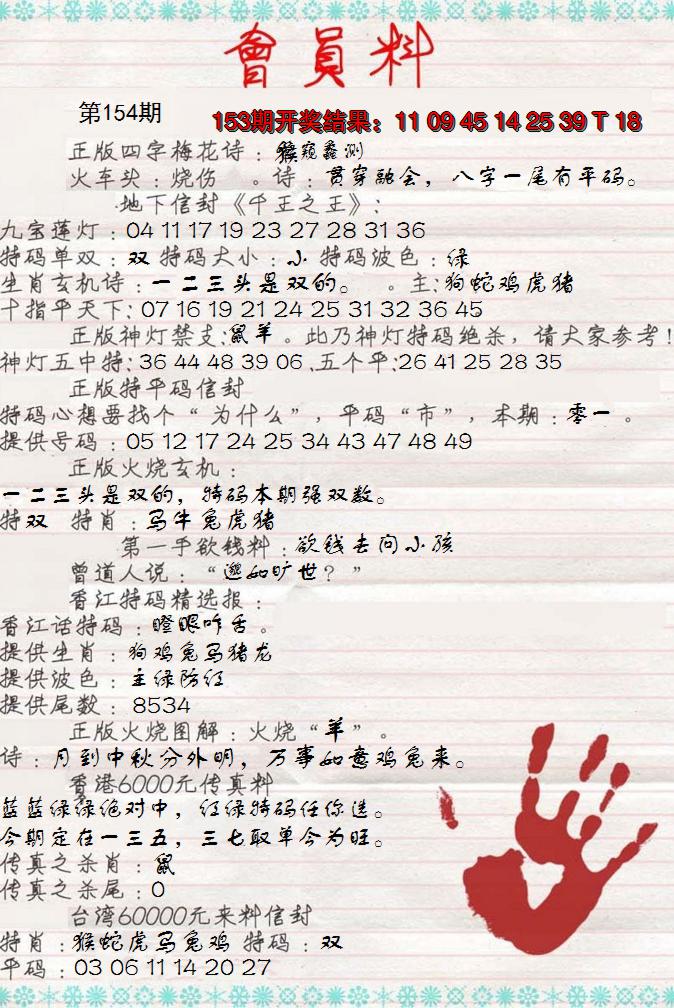 會員料
第154期
153期开奖结果：11 09 45 14 25 39 T 18
正版四字梅花诗：猴窥蠡测
火车头：烧伤 。诗：贯穿融会，八字一尾有平码。
地下信封《千王之王》：
九宝莲灯：04 11 17 19 23 27 28 31 36
特码单双：双 特码大小：小 特码波色：绿
生肖玄机诗：一二三头是双的。 。主：狗蛇鸡虎猪
十指平天下：07 16 19 21 24 25 31 32 36 45
正版神灯禁支：鼠羊。此乃神灯特码绝杀，请大家参考！
神灯五中特：36 44 48 39 06 .五个平：26 41 25 28 35
正版特平码信封
特码心想要找个“为什么”，平码“市”，本期：零一。
提供号码：05 12 17 24 25 34 43 47 48 49
正版火烧玄机：
一二三头是双的，特码本期强双数。
特双 特肖：马牛兔虎猪
第一手欲钱料：欲钱去问小孩
曾道人说：“邈如旷世？”
香江特码精选报：
香江话特码：瞪眼咋舌。
提供生肖：狗鸡兔马猪龙
提供波色：主绿防红
提供尾数：8534
正版火烧图解：火烧“羊”。
诗：月到中秋分外明，万事如意鸡兔来。
香港6000元传真料
蓝蓝绿绿绝对中，红绿特码任你选。
今期定在一三五，三七取单今为旺。
传真之杀肖：鼠
传真之杀尾：0
台湾60000元来料信封
特肖：猴蛇虎马兔鸡 特码：双
平码：03 06 11 14 20 27